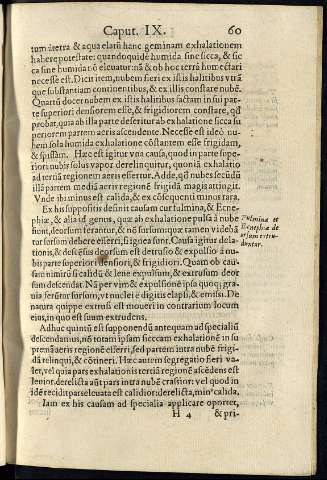 Caput. IX. 60
tum à terra & aqua elatũ hanc geminam exhalationem
habere potestatẽ: quandoquidẽ humida sine sicca, & sic
ca sine humida nõ eleuatur: nã & ob hoc terrã homectari
necesse est. Dicit item, nubem fieri ex istis halitibus vtrã
que substantiam continentibus, & ex illis constare nubẽ.
Quartũ docer nubem ex istis halitibus factam in sui par
te superiori densiorem esse, & frigidiorem constare, qđ
probat, quia ab illa parte deseritur ab exhalatione sicca su
periorem partem aeris ascendente. Necesse est ideò nu-
bem sola humida exhalatione cõstantem esse frigidam,
& spissam. Hæc est igitur vna causa, quod in parte supe-
riori nubis solus vapor derelinquitur, quoniã exhalatio
ad tertiã regionem aeris essertur. Adde, qđ nubes secũdũ
illã partem mediã aeris regionẽ frigidã magis attingit.
Vnde ibi minus est calida, & ex cõsequenti minus rara.
Ex his suppositis desinit causam cur fulmina, & Ecne-
phiæ, & alia id genus, quæ ab exhalatione pulsã à nube
fiunt, deorsum ferantur, & nõ sursum: quæ tamen videbã
tur sursum debere efferri, si ignea sunt. Causa igitur dela-
tionis, & descẽsus deorsum est detrusio & expulsio à nu-
bis parte superiori densiori, & frigidiori. Quam ob cau-
sam nimirũ si calidã & leue expulsum, & extrusum deor
sum descendat. Nã per vim & expulsionẽ ipsa quoq; gra-
uia ferũtur sursum, vt nuclei è digitis elapsi, & emissi. De
natura quippe extrusi est moueri in contrarium locum
eius, in quo est suum extrudens.
Fulmina et
Ecnephiæ de
orsum exten-
duntur.
Adhuc quintũ est supponendũ antequam ad specialiũ
descendamus, nõ totam ipsam siccam exhalationẽ in su
premã aeris regionẽ efferri, sed partem intra nubẽ frigi-
dã relinqui, & cõtineri. Hæc autem segregatio fieri va-
let, vel quia pars exhalationis tertiã regionẽ ascẽdẽs est
lenior, derelicta aũt pars intra nubẽ crassior: vel quod in
idẽ recidit pars eleuata est calidior: derelicta, min⁹ calida.
Iam ex his causam ad specialia applicare oportet,
H 4 & pri-